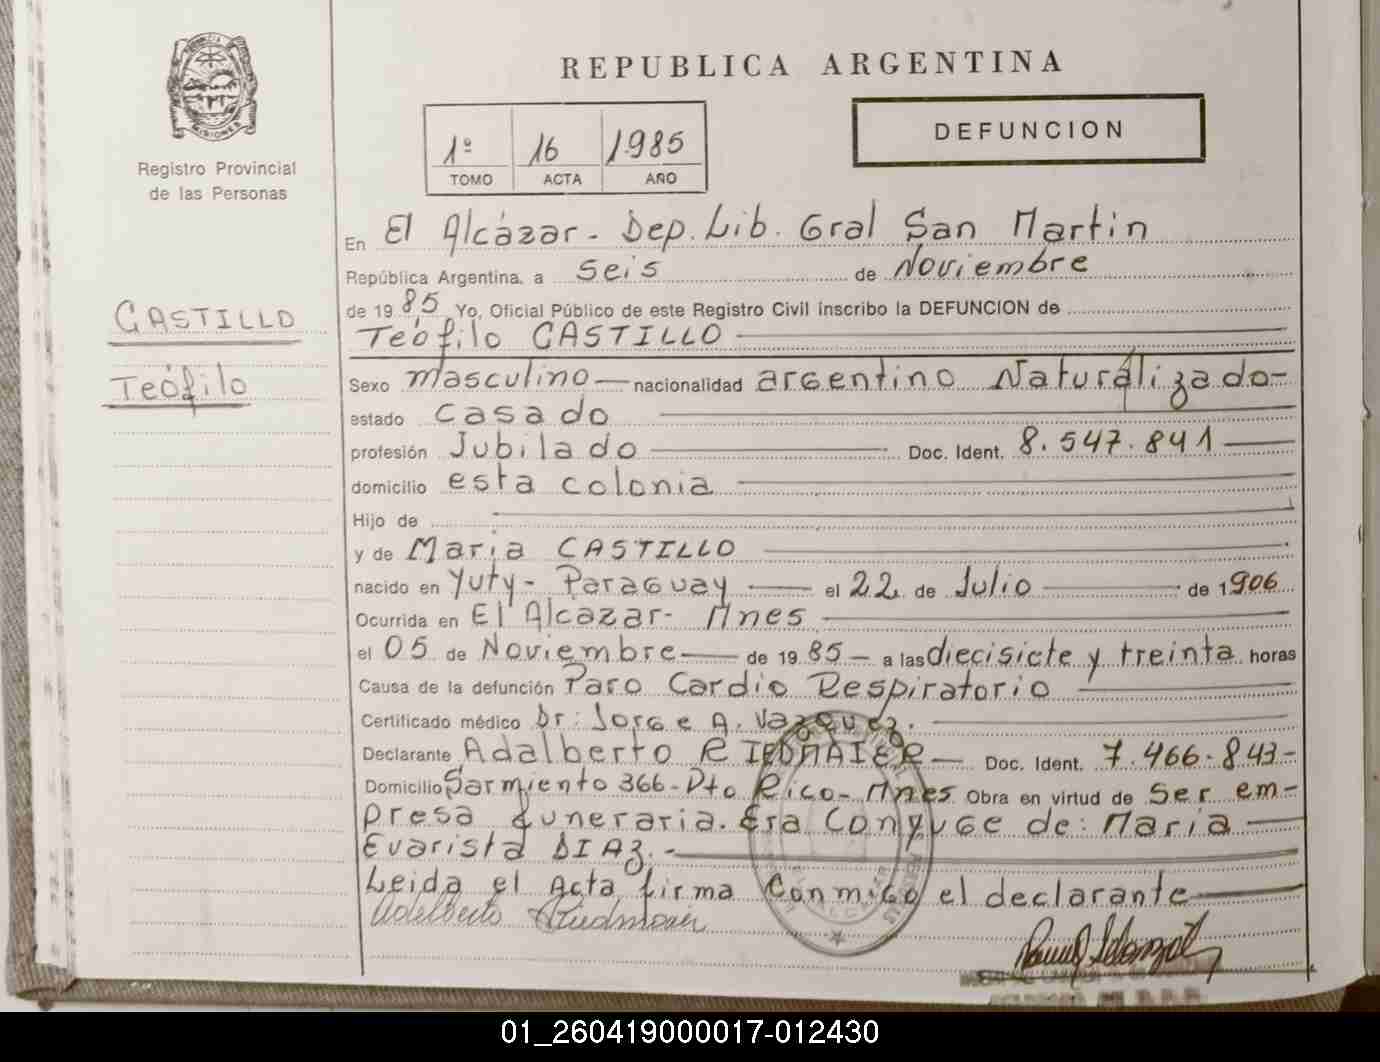 MISIONES
Registro Provincial
de las Personas
REPUBLICA ARGENTINA
1º 16 1985
TOMO ACTA AÑO
DEFUNCION
CASTILLO
Teófilo
En El Alcázar - Dep. Lib. Gral San Martin
República Argentina, a seis de Noviembre
de 1985 Yo, Oficial Público de este Registro Civil inscribo la DEFUNCION de
Teófilo CASTILLO
Sexo masculino nacionalidad argentino Naturalizado-
estado casado
profesión Jubilado Doc. Ident. 8.547.841
domicilio esta colonia
Hijo de
y de Maria CASTILLO
nacido en Yuty - Paraguay el 22 de Julio de 1906
Ocurrida en El Alcazar - Mnes
el 05 de Noviembre de 1985 - a las diecisiete y treinta horas
Causa de la defunción Paro Cardio Respiratorio
Certificado médico Dr: Jorge A. Vazquez.
Declarante Adalberto RIEDMAIER Doc. Ident. 7.466.843-
Domicilio Sarmiento 366 - Pto Rico - Mnes Obra en virtud de Ser em-
presa funeraria. Era Conyuge de: Maria
Evarista DIAZ. -
Leida el Acta firma Conmigo el declarante
Adelberto
01_260419000017-012430